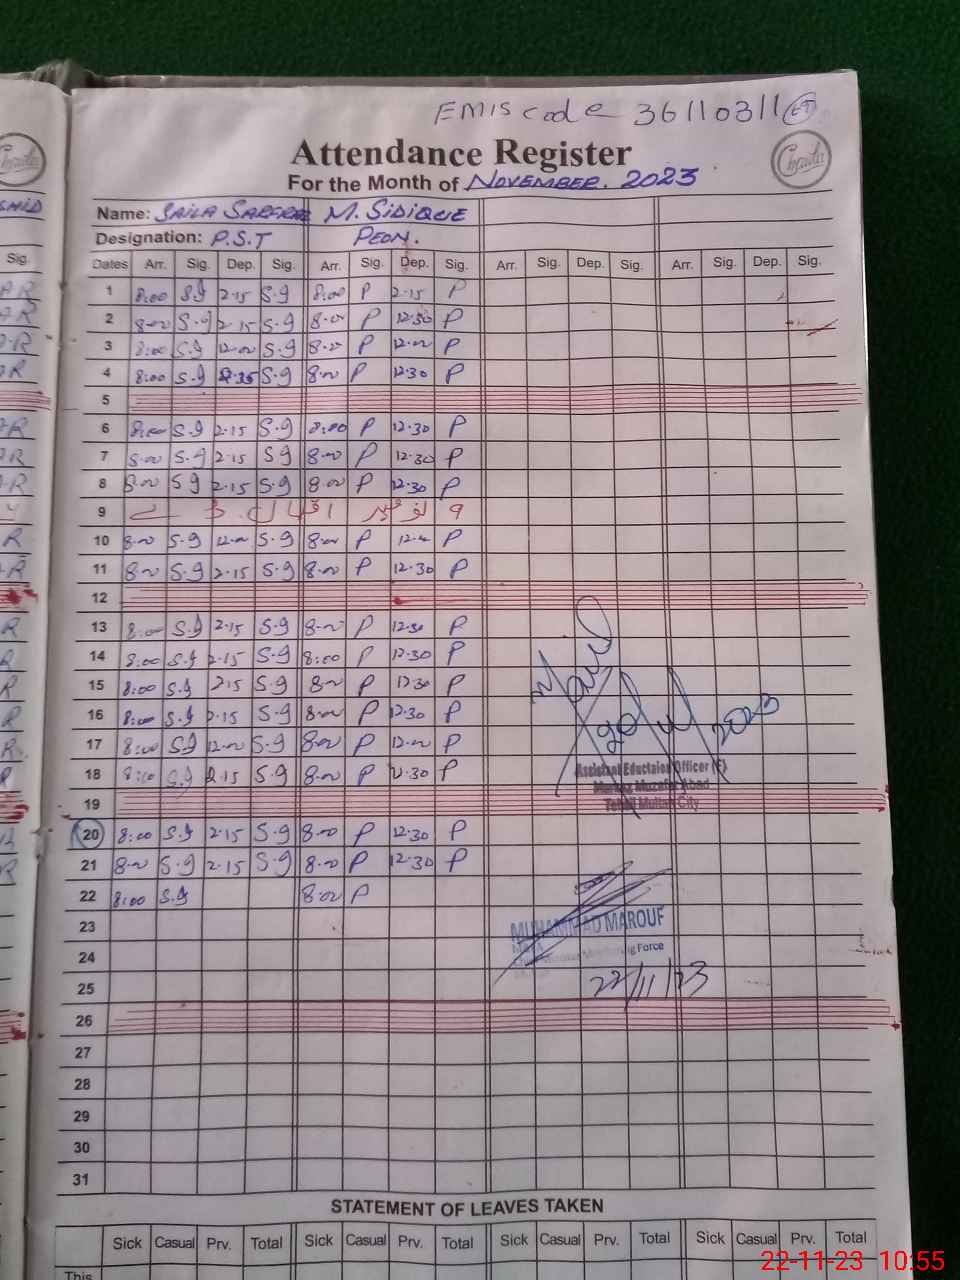 EMIS code 36110311
Attendance Register
For the Month of NOVEMBER. 2023
Chrata
Name: SAILA SARFRAZ M. SIDIQUE
Designation: P.S.T PEON.
Sig. Dates Arr. Sig. Dep. Sig. Arr. Sig. Dep. Sig. Arr. Sig. Dep. Sig. Arr. Sig. Dep. Sig.
1 8:00 S.g 2.15 S.g 8:00 P 2.15 P
2 8.00 S.g 2.15 S.g 8.00 P 12.30 P
3 8:00 S.g 12.00 S.g 8.00 P 12.00 P
4 8:00 S.g S.g 8.00 P 12.30 P
5
6 8:00 S.g 2.15 S.g 8:00 P 12.30 P
7 8.00 S.g 2.15 S g 8.00 P 12.30 P
8 8.00 S g 2.15 S.g 8.00 P 12.30 P
9 ۹ نومبر اقبال ڈے
10 8.00 S.g 12.00 S.g 8.00 P P
11 8.00 S.g 2.15 S.g 8.00 P 12.30 P
12
13 8:00 S.g 2.15 S.g 8.00 P 12.30 P
14 8:00 S.g 2.15 S.g 8:00 P 12.30 P
15 8:00 S.g 2.15 S.g 8.00 P 12.30 P
16 8:00 S.g 2.15 S.g 8.00 P 12.30 P
17 8:00 S.g 12.00 S.g 8.00 P 12.00 P
18 8:00 S.g 2.15 S.g 8.00 P 12.30 P
2023
Assistant Eductaion Officer (F)
Markaz Muzafar Abad
Tehsil Multan City
19
20 8:00 S.g 2.15 S.g 8.00 P 12.30 P
21 8.00 S.g 2.15 S.g 8.00 P 12.30 P
22 8:00 S.g 8.00 P
23
MUHAMMAD MAROUF
24
Monitoring Force
25
22/11/23
26
27
28
29
30
31
STATEMENT OF LEAVES TAKEN
Sick Casual Prv. Total Sick Casual Prv. Total Sick Casual Prv. Total Sick Casual Prv. Total
This
22-11-23 10:55